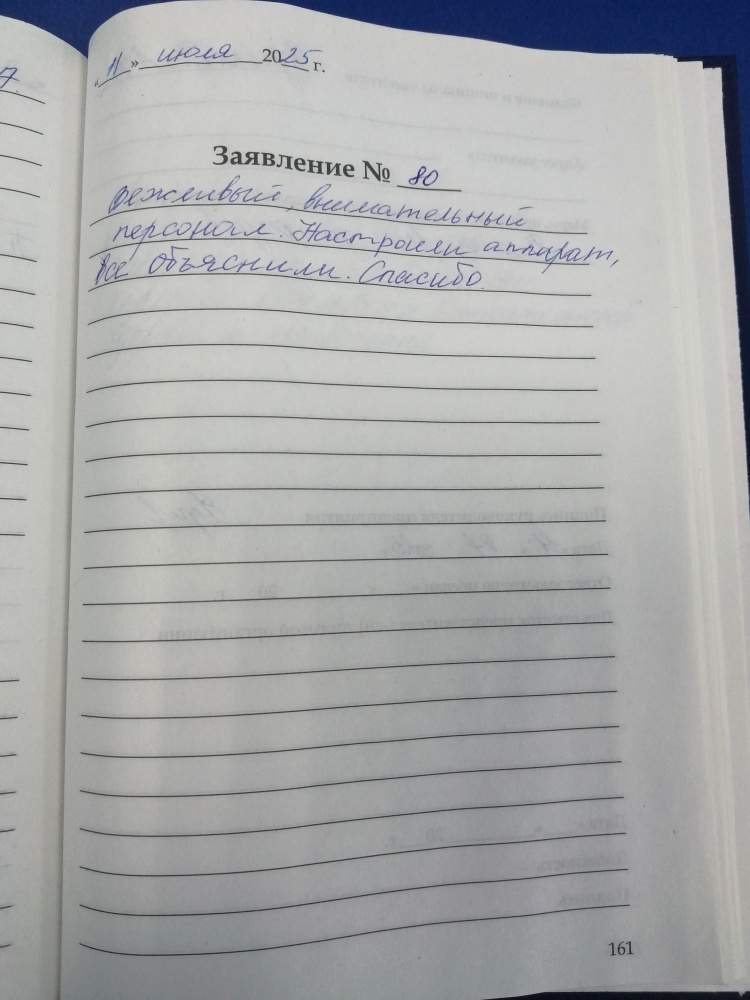 «11» июля 2025 г.
Заявление № 80
Вежливый, внимательный
персонал. Настроили аппарат,
все объяснили. Спасибо.
161